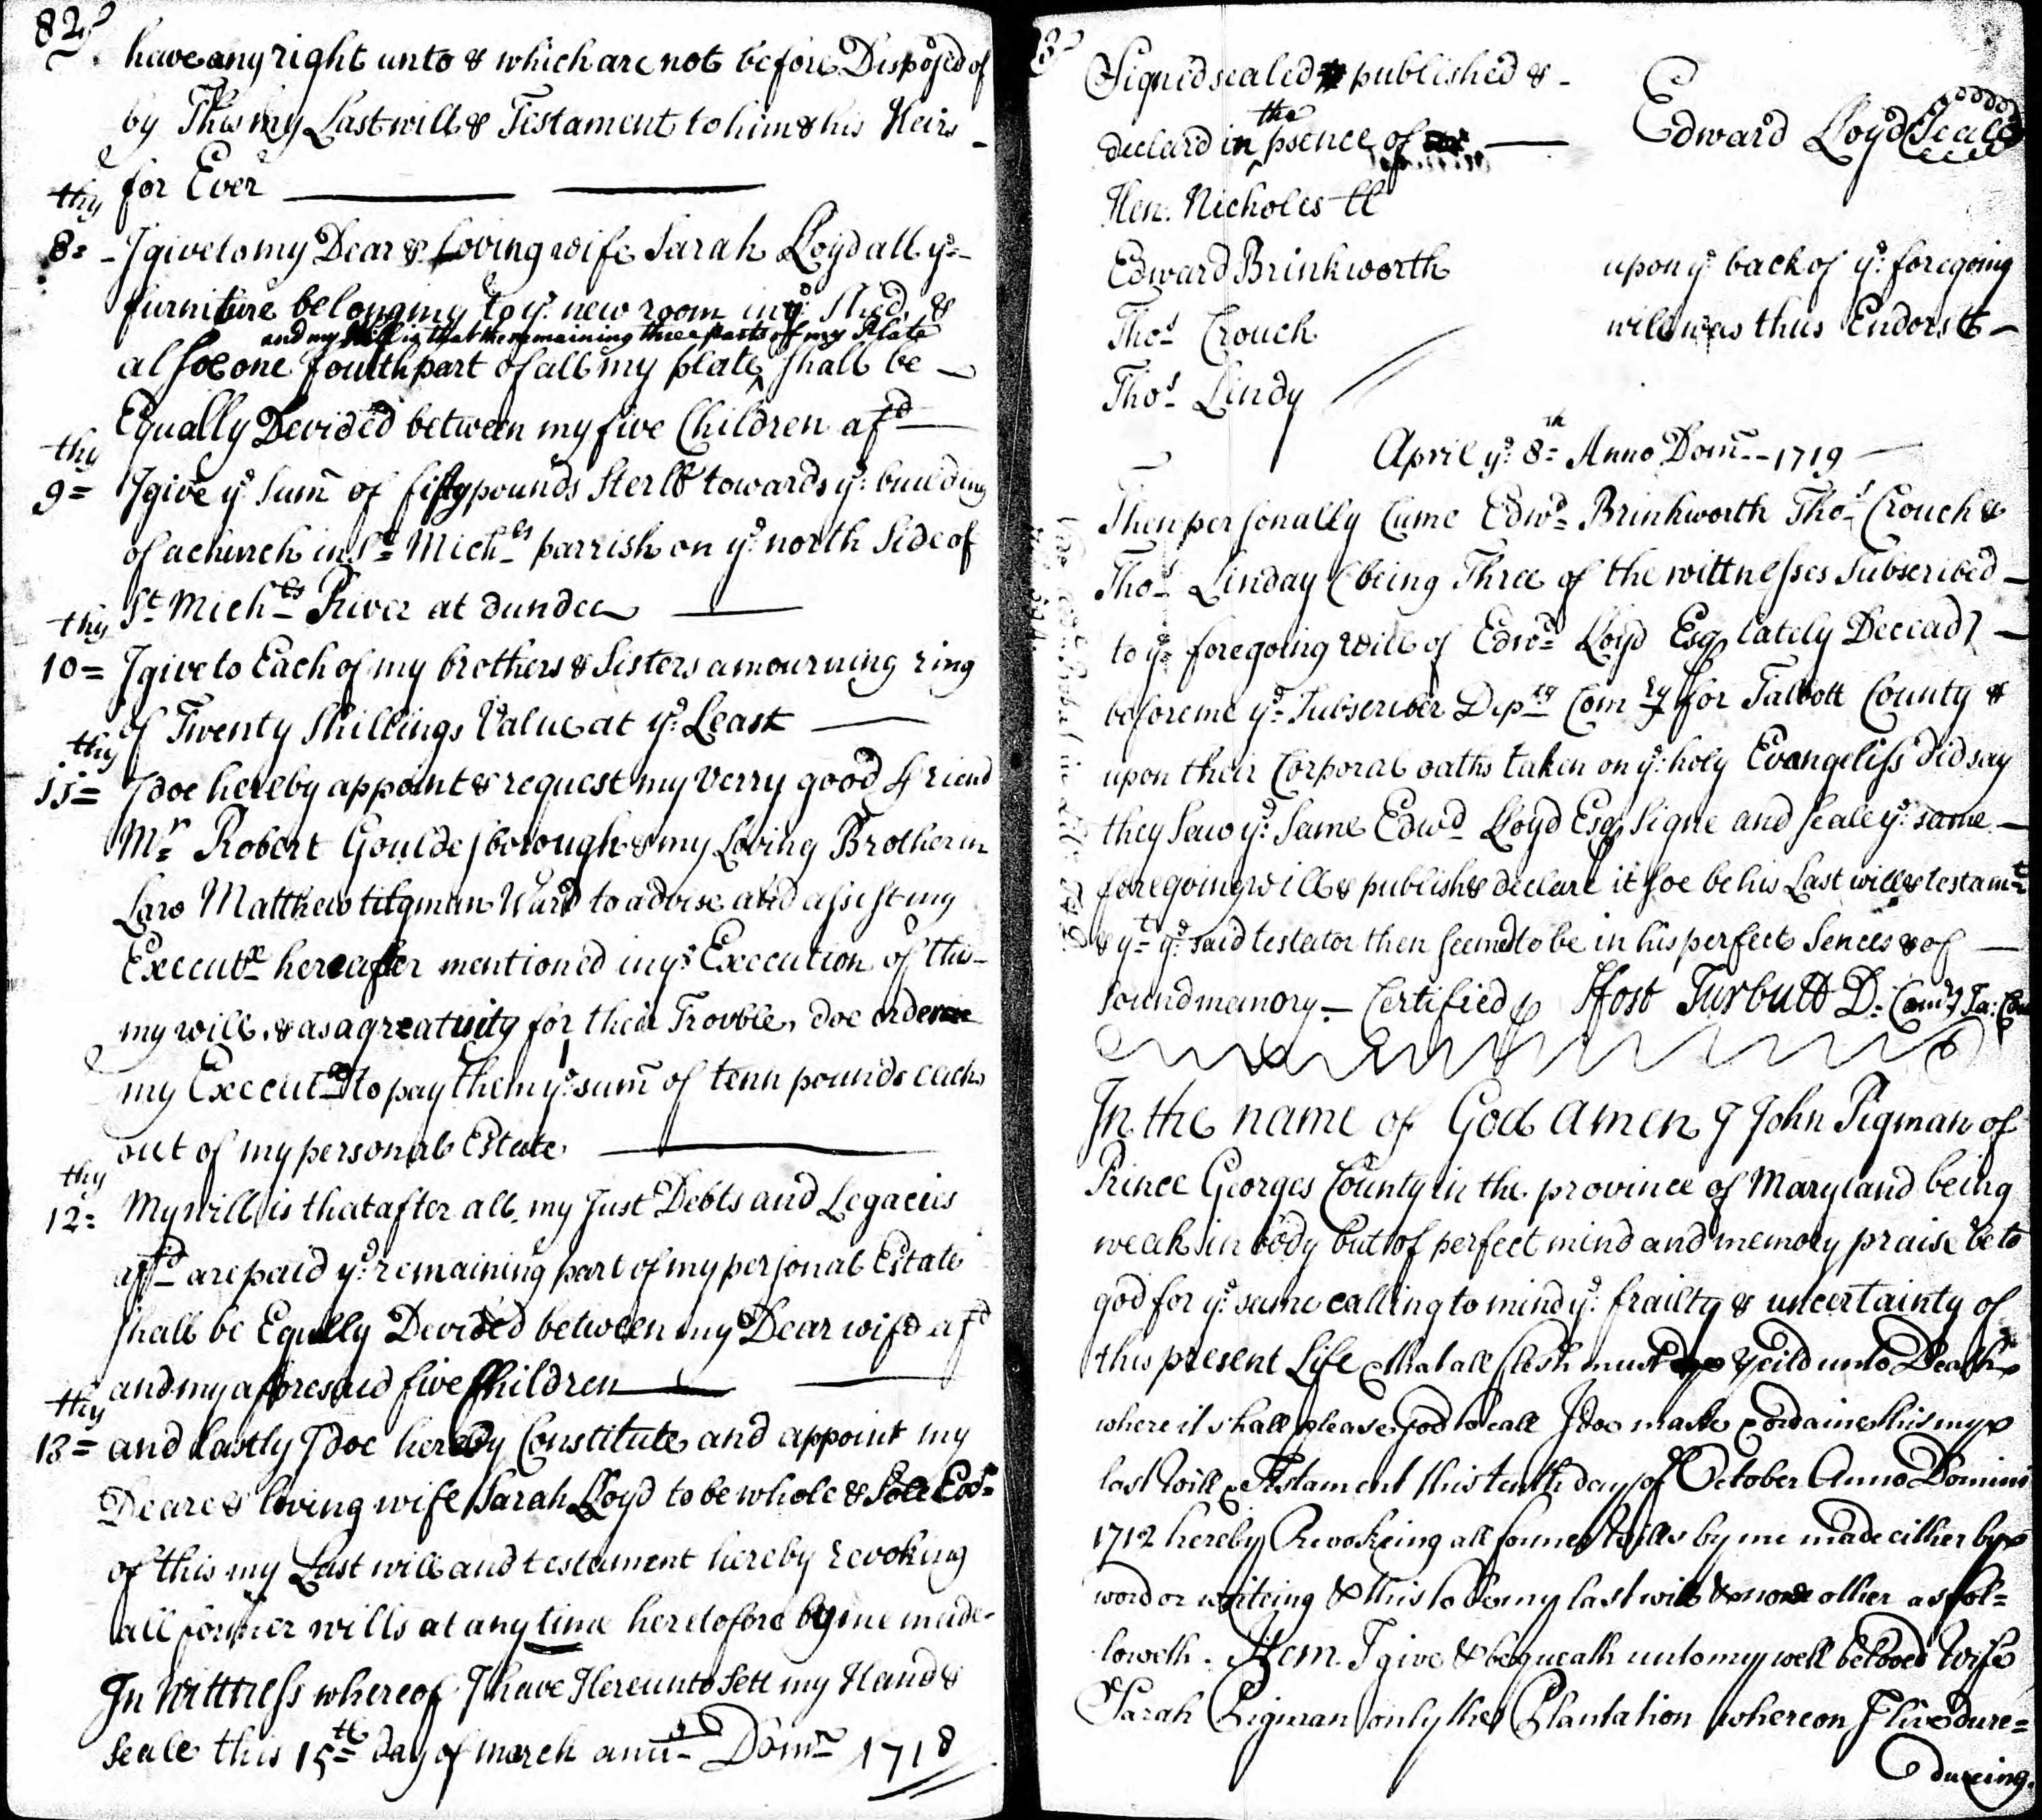 82
have any right unto & which are not before Disposed of
by This my Last will & Testament to him & his Heirs -
for Ever
thy
8= - I give to my Dear & Loving wife Sarah Lloyd all ye -
furniture belonging to ye new room in ye Shed, &
and my Will is that the remaining three parts of my Plate
alsoe one fourth part of all my plate ^ shall be -
Equally Devided between my five Children afd
thy
9= I give ye Sum of fifty pounds Sterll towards ye building
of a church in St Michls parrish on ye north Side of
St Michls River at dundee
thy
10= I give to Each of my brothers & Sisters a mourning ring
of Twenty Shillings Value at ye Least
thy
11= I doe hereby appoint & request my verry good Friend
Mr Robert Gouldesborough & my Loving Brother in
Law Matthew tilgman Ward to advise and assist my
Executx hereafter mentioned in ye Execution of this -
my will, & as a greatuity for their Trouble, doe order
my Executx to pay them ye sum of tenn pounds each
out of my personal Estate
thy
12= My will is that after all my Just Debts and Legacies
afd are paid ye remaining part of my personal Estate
shall be Equally Devided between my Dear wife afd
and my aforesaid five Children
thy
13= and Lastly I doe hereby Constitute and appoint my
Deare & loving wife Sarah Lloyd to be whole & Sole Exx
of this my Last will and testament hereby revoking
all former wills at any time heretofore by me made -
In Wittness whereof I have Hereunto Sett my Hand &
Seale this 15th day of march anno Dom 1718
Signed sealed published & -
the
declard in ^ psence of
Edward Lloyd (Seale)
Hen: Nicholes tt
Edward Brinkworth
upon ye back of ye foregoing
Thos Crouch
will was thus Endorst -
Thos Lindy
April ye 8th Anno Dom - 1719
Then personally Came Edwd Brinkworth Thos Crouch &
Thos Linday (being Three of the wittnesses Subscribed -
to ye foregoing will of Edwd Lloyd Esqr lately Decead) -
before me ye Subscriber Depty Comry for Talbott County &
upon their Corporal oaths taken on ye holy Evangeliss did say
they Saw ye Same Edwd Lloyd Esqr Signe and Seale ye same -
foregoing will & publish & declare it soe be his Last will & testamt
& yt ye said testator then seemed to be in his perfect Sences & of
sound memory - Certified p ffost Turbutt D: Comry Ta: Cou
In the name of God Amen I John Pigman of
Prince Georges County in the province of Maryland being
weak in body but of perfect mind and memory praise be to
god for ye same calling to mind ye frailty & uncertainty of
this present Life & that all flesh must yeild unto Death
where it shall please god to call I doe make & ordaine this my
last Will & Testament this tenth day of October Anno Domini
1712 hereby Revokeing all former Wills by me made either by
word or writeing & this to be my last will & none other as fol=
loweth. Item. I give & bequeath unto my well beloved Wife
Sarah Pigman only the Plantation whereon I live dure=
dureing